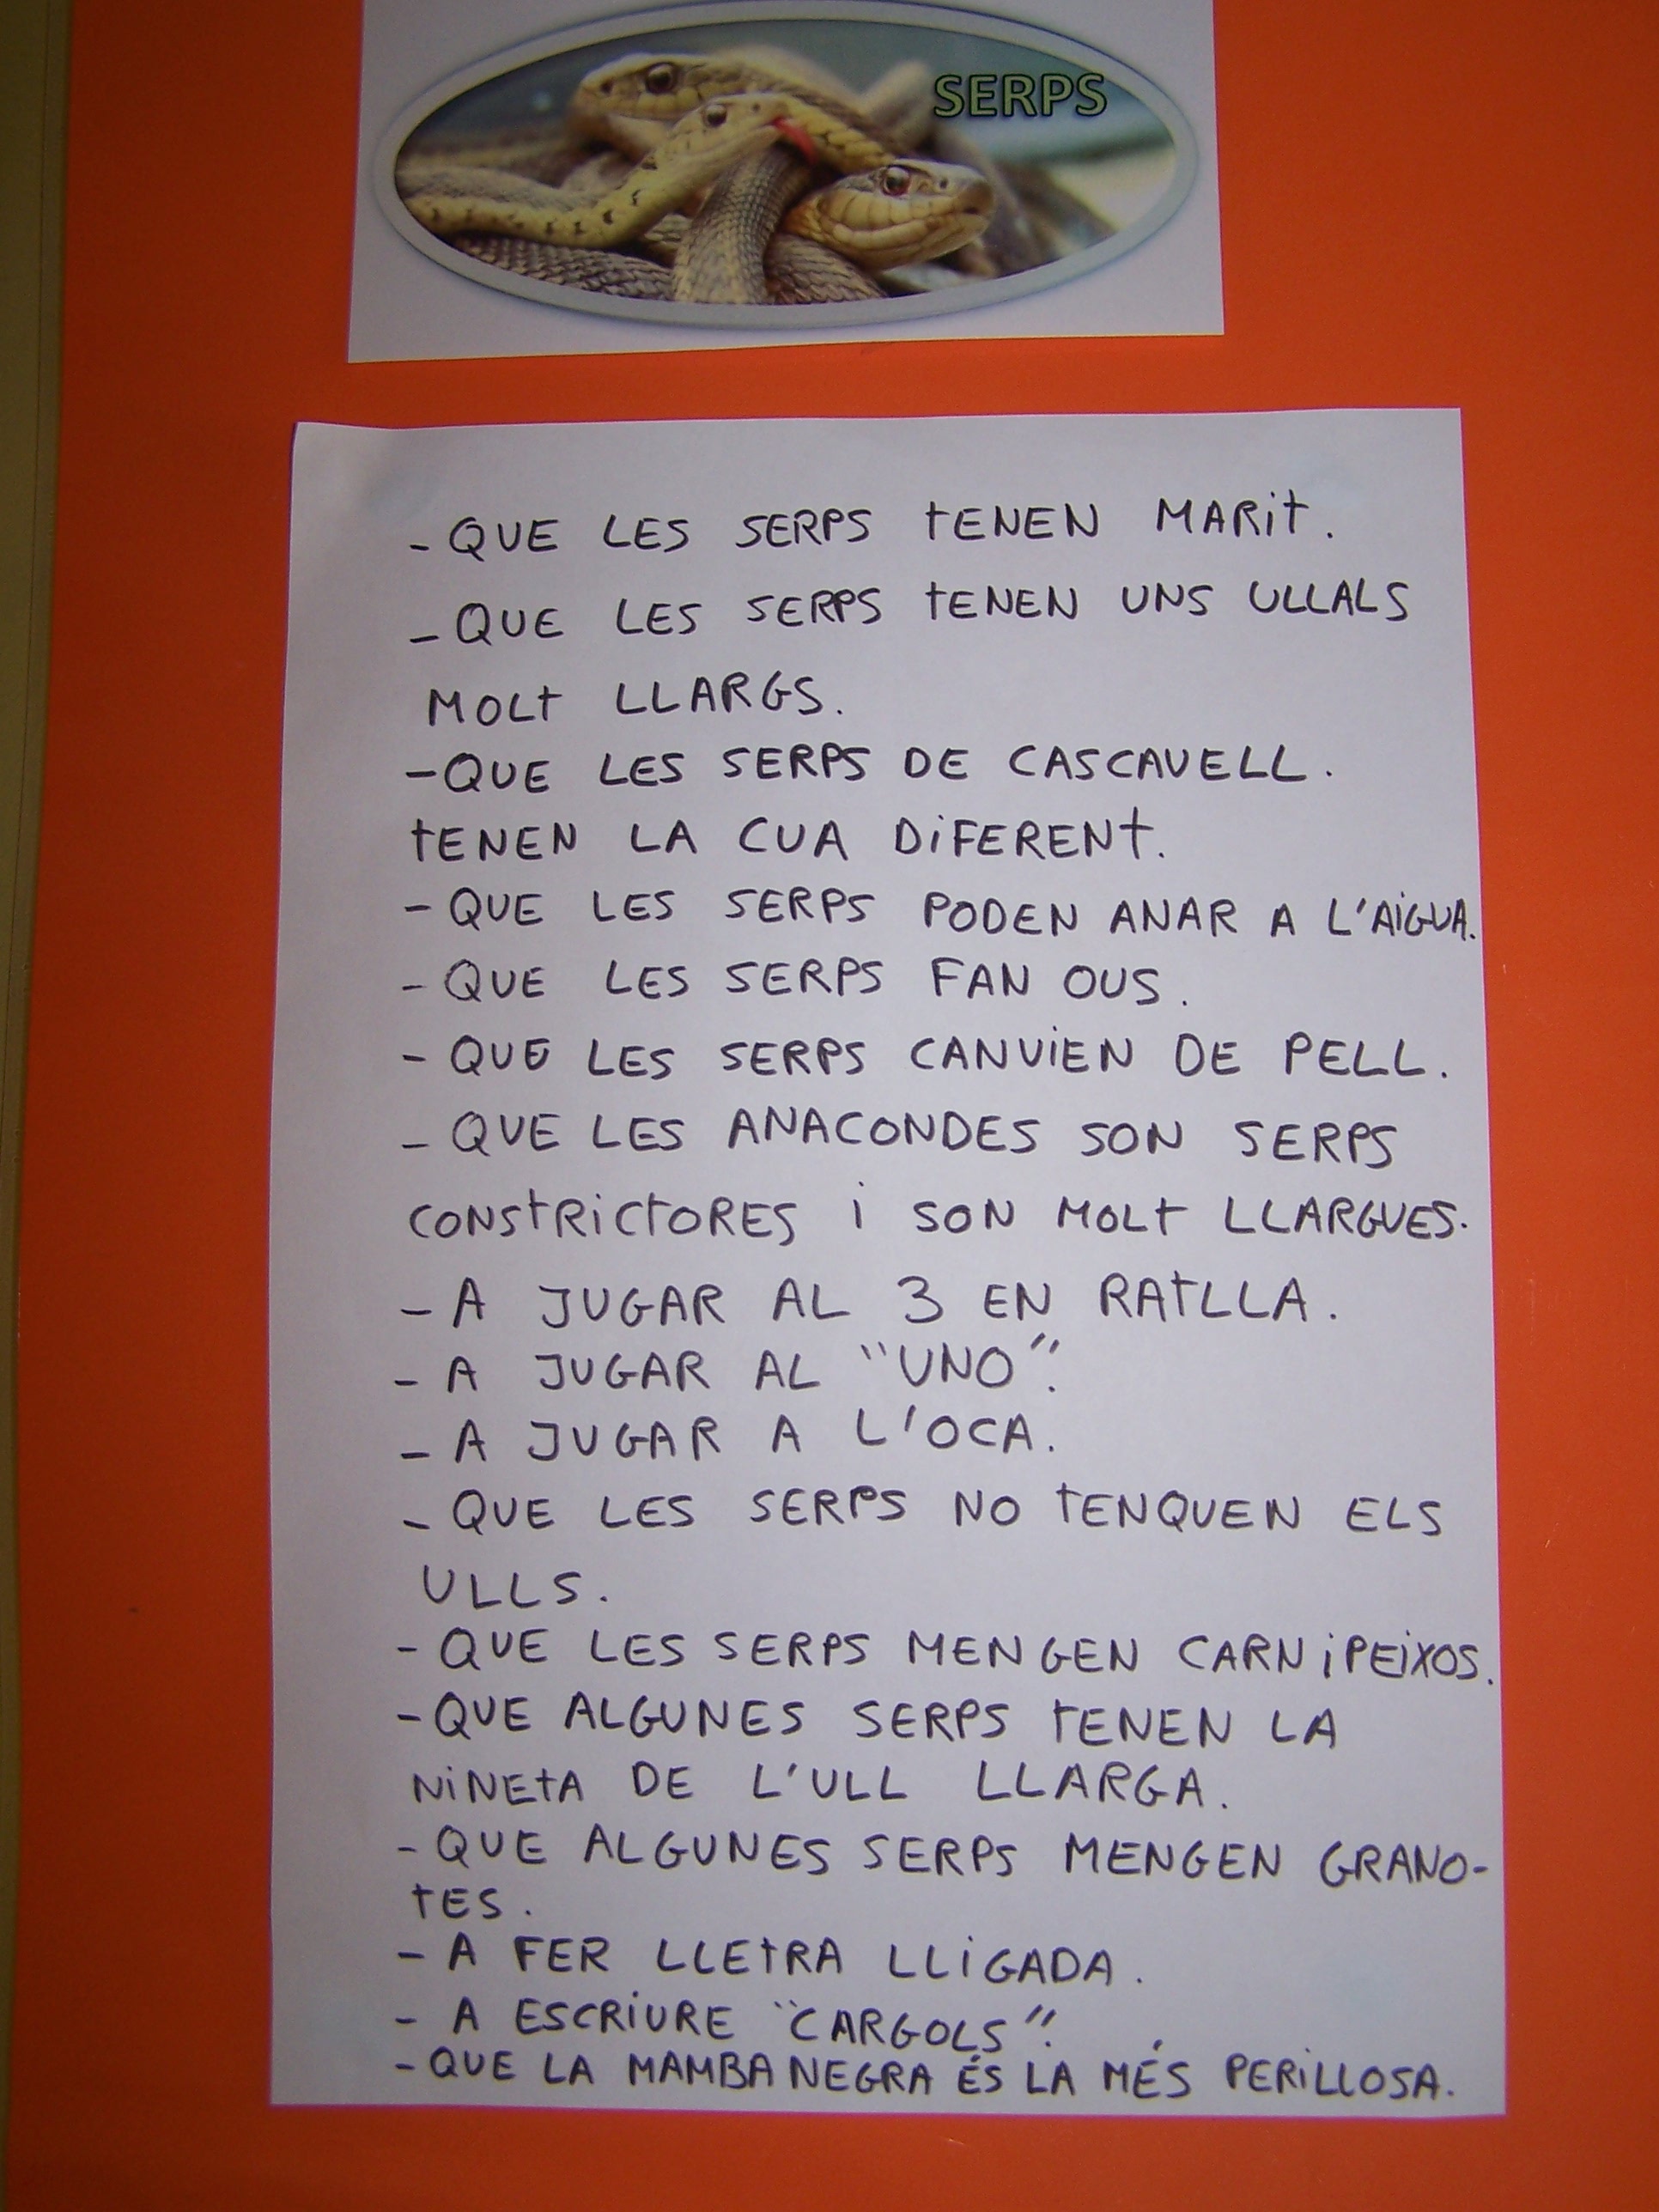 SERPS
- QUE LES SERPS TENEN MARIT.
- QUE LES SERPS TENEN UNS ULLALS
MOLT LLARGS.
- QUE LES SERPS DE CASCAVELL.
TENEN LA CUA DIFERENT.
- QUE LES SERPS PODEN ANAR A L'AIGUA.
- QUE LES SERPS FAN OUS.
- QUE LES SERPS CANVIEN DE PELL.
- QUE LES ANACONDES SON SERPS
CONSTRICTORES I SON MOLT LLARGUES.
- A JUGAR AL 3 EN RATLLA.
- A JUGAR AL "UNO".
- A JUGAR A L'OCA.
- QUE LES SERPS NO TENQUEN ELS
ULLS.
- QUE LES SERPS MENGEN CARN I PEIXOS.
- QUE ALGUNES SERPS TENEN LA
NINETA DE L'ULL LLARGA.
- QUE ALGUNES SERPS MENGEN GRANO-
TES.
- A FER LLETRA LLIGADA.
- A ESCRIURE "CARGOLS".
- QUE LA MAMBA NEGRA ÉS LA MÉS PERILLOSA.